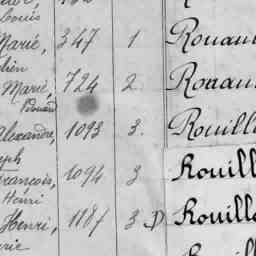 Louis
Marie, 347 1 Rouau
lien
Marie, 724 2. Rouau
Edouard
Alexandre, 1093 3. Rouill
eph
François, 1094 3 Rouill
Henri
Henri, 1187 3 D Rouill
rie